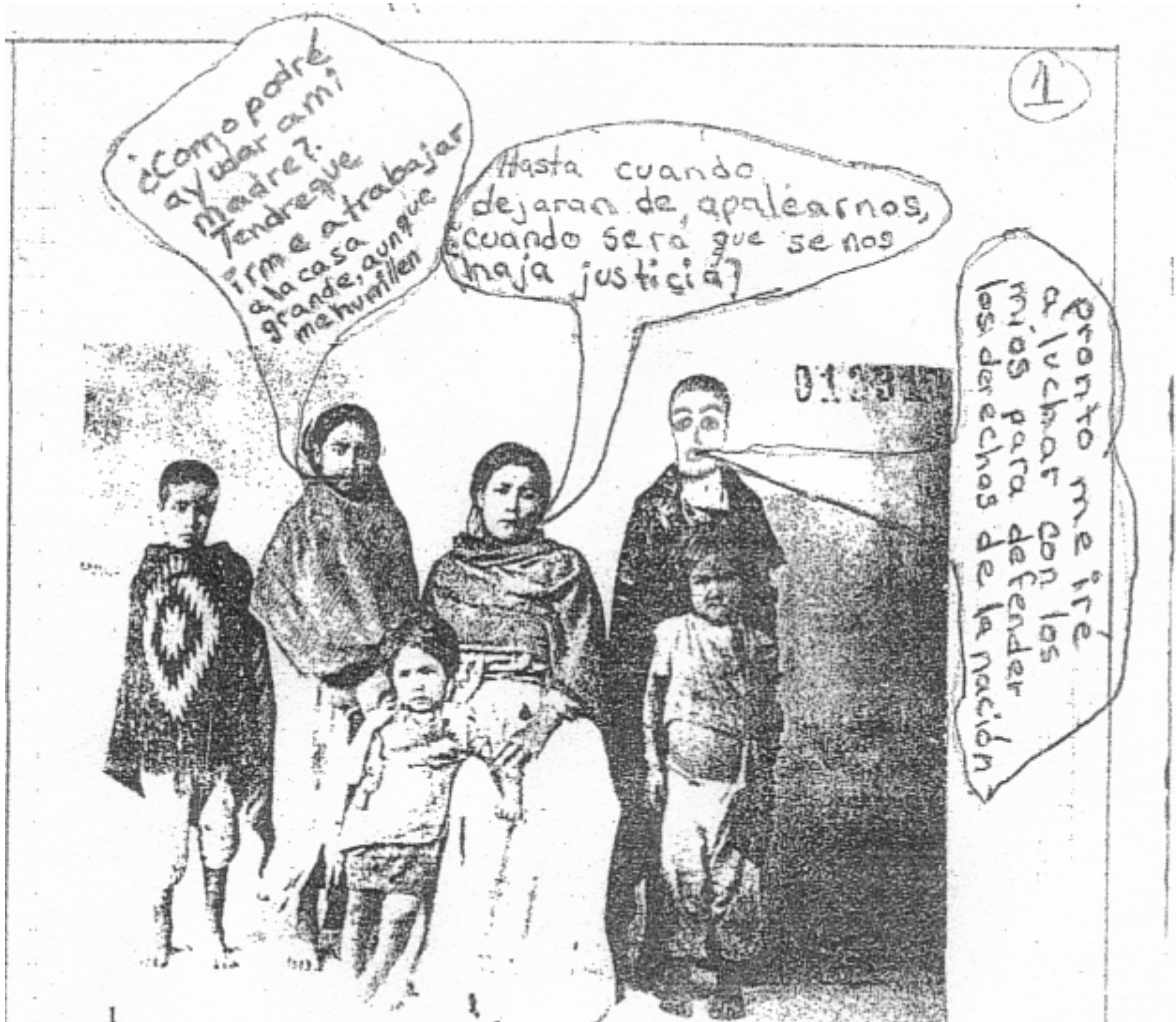 ¿Como podré
ayudar a mi
madre?.
Tendre que
irme a trabajar
a la casa
grande, aunque
me humillen
Hasta cuando
dejaran de apaléarnos,
¿cuando será que se nos
haja justicia?
1
pronto me iré
a luchar con los
mios para defender
los derechos de la nación